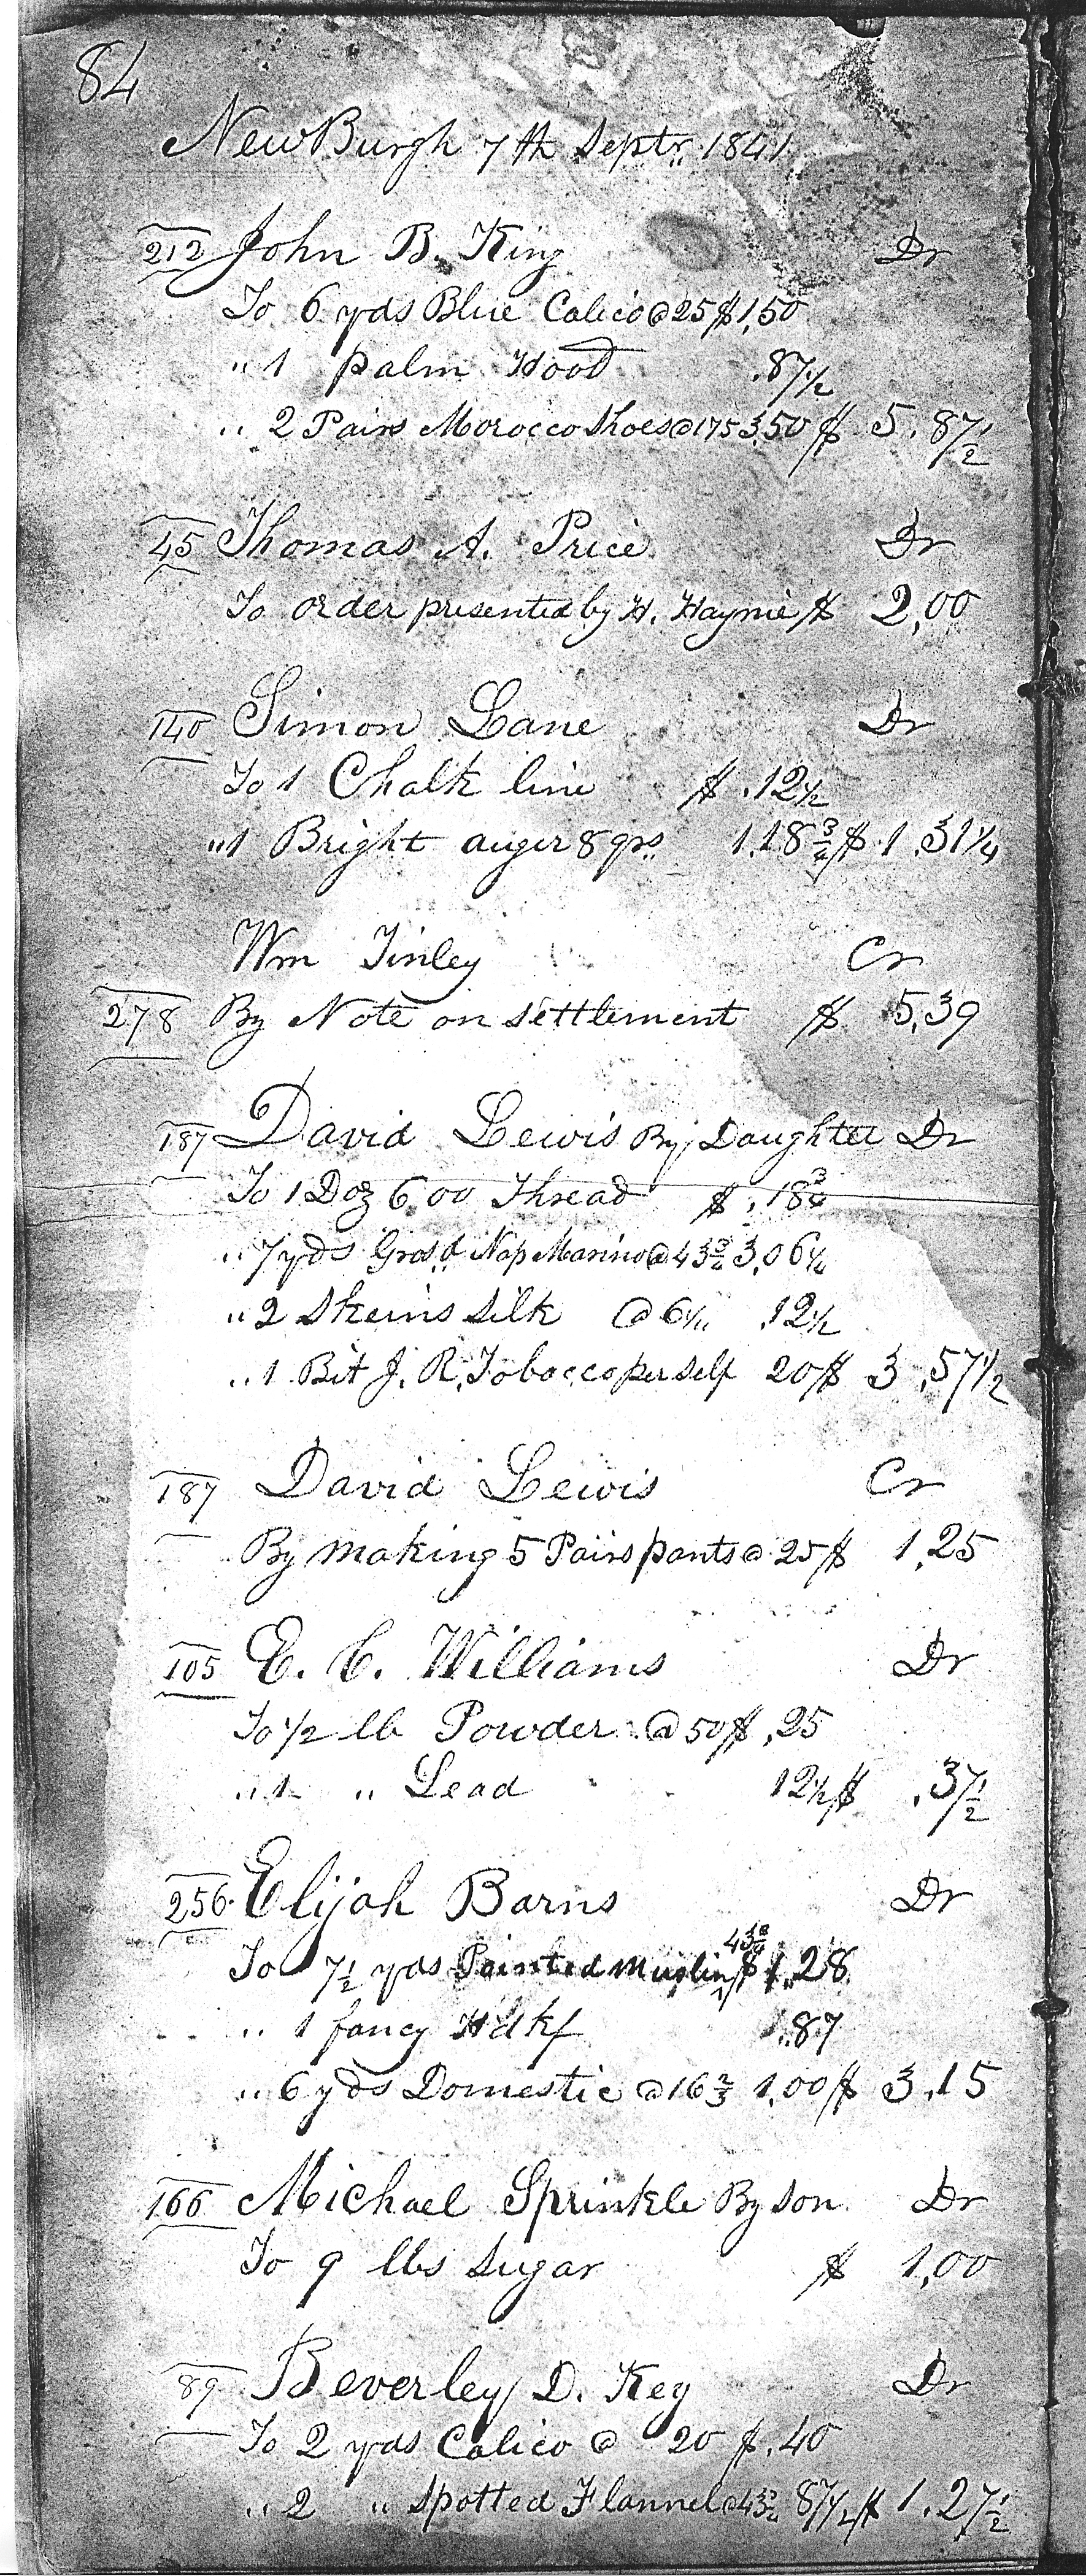 84
NewBurgh 7th Septr. 1841
212 John B. King Dr
To 6 yds Blue Calico @ 25 $1,50
" 1 palm Hood .87 1/2
" 2 Pairs Morocco Shoes @ 175 3,50 $ 5.87 1/2
45 Thomas A. Price Dr
To order presented by H. Haynie $ 2,00
140 Simon Lane Dr
To 1 Chalk line $ .12 1/2
" 1 Bright auger 8 qrs 1.18 3/4 $ 1.31 1/4
Wm Finley Cr
278 By Note on settlement $ 5,39
187 David Lewis By Daughter Dr
To 1 Doz 6.00 Thread $ .18 3/4
" 7 yds Gros d Nap Marino @ 43 3/4 3,06 1/4
" 2 Skeins silk @ 6 1/4 .12 1/2
" 1 Bit J. R. Tobacco per self 20 $ 3,57 1/2
187 David Lewis Cr
By making 5 Pairs pants @ 25 $ 1,25
105 E. C. Williams Dr
To 1/2 lb Powder @ 50 $ ,25
" 1 " Lead 12 1/2 $ .37 1/2
256 Elijah Barns Dr
43 3/4
To 7 1/2 yds Painted Muslin $ 1.28
" 1 fancy Hdkf .87
" 6 yds Domestic @ 16 2/3 1,00 $ 3.15
166 Michael Sprinkle By son Dr
To 9 lbs sugar $ 1,00
89 Beverley D. Key Dr
To 2 yds Calico @ 20 $ .40
" 2 " spotted Flannel @ 43 3/4 87 1/2 $ 1.27 1/2